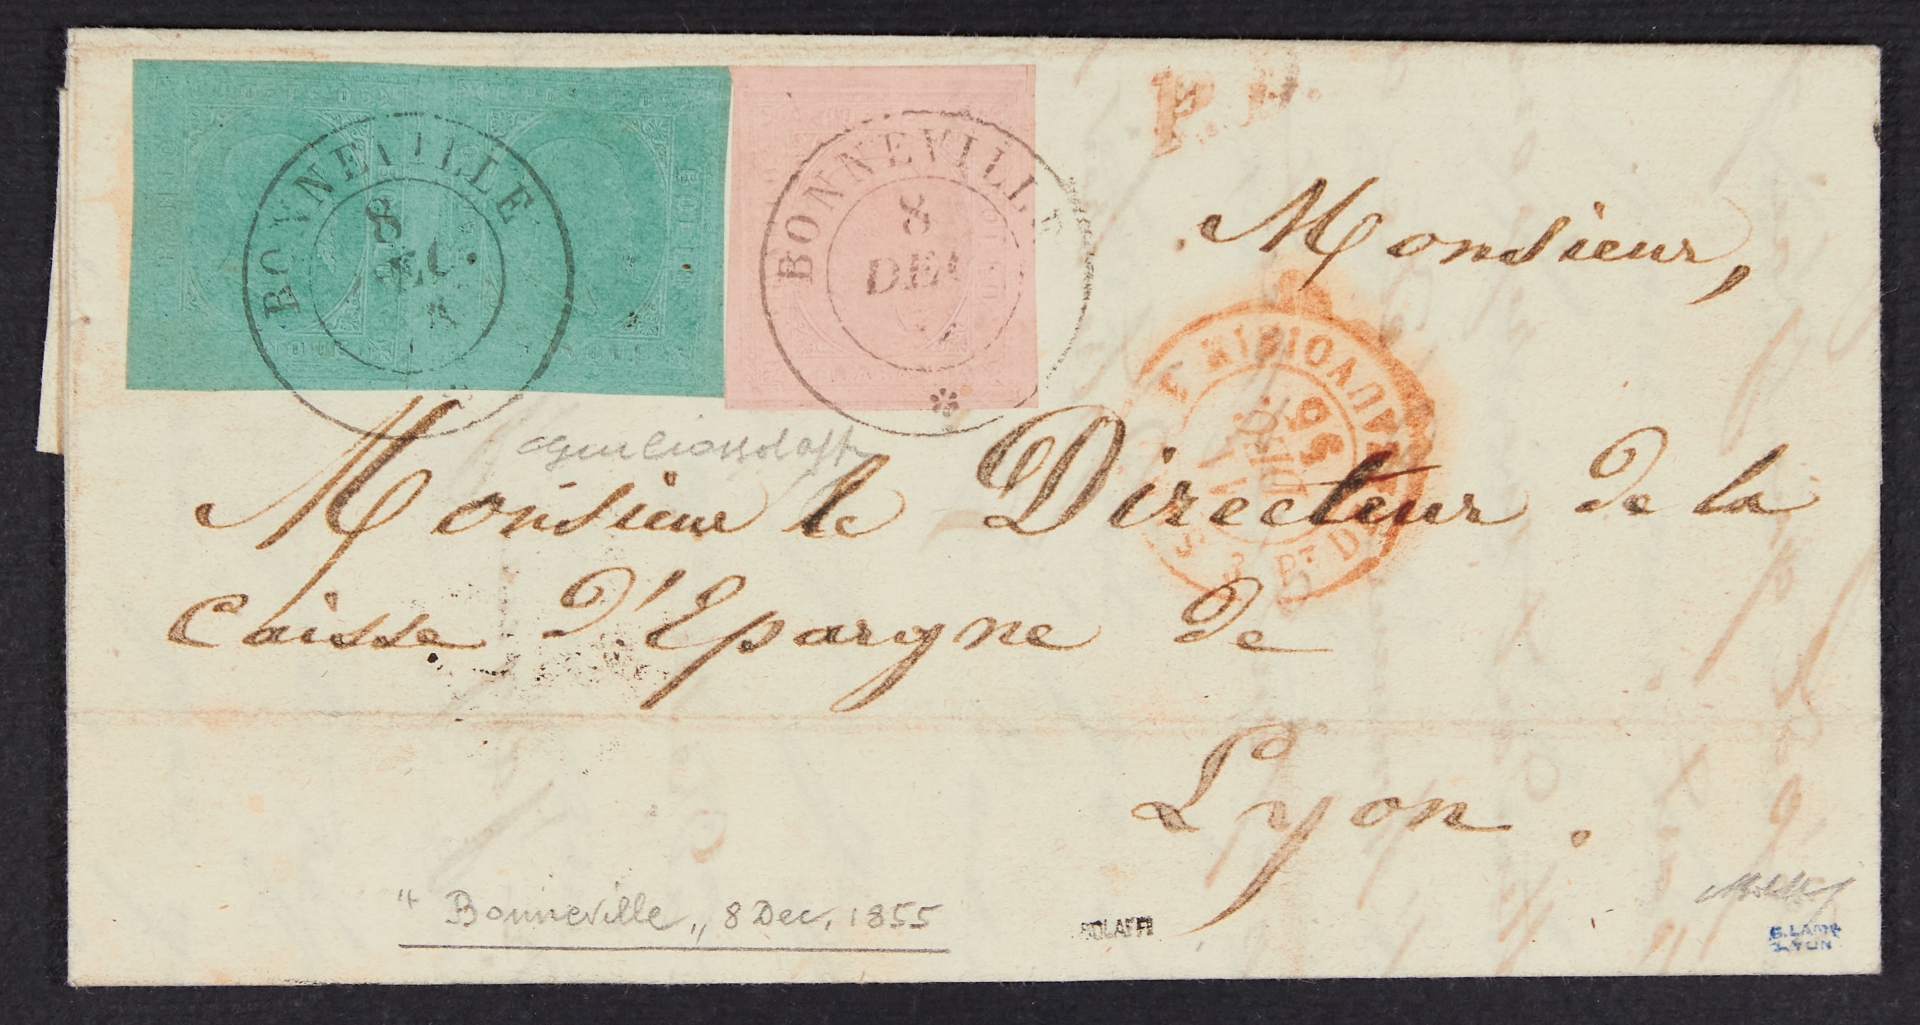 BONNEVILLE
8
DEC.
BONNEVILLE
8
DEC
P. D.
Monsieur,
Monsieur le Directeur de la
Caisse d'Epargne de
Lyon.
" Bonneville „ 8 Dec. 1855
BOLAFFI
LYON